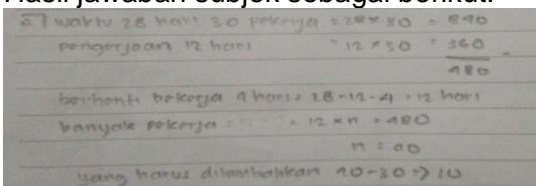 Hasil jawaban subjek sebagai berikut:
5) waktu 28 hari 30 pekerja = 28 × 30 = 840
pengerjaan 12 hari = 12 × 30 = 360 -
480
berhenti bekerja 4 hari = 28-12-4 = 12 hari
banyak pekerja = 12 × n = 480
n = 40
yang harus ditambahkan 40-30 => 10